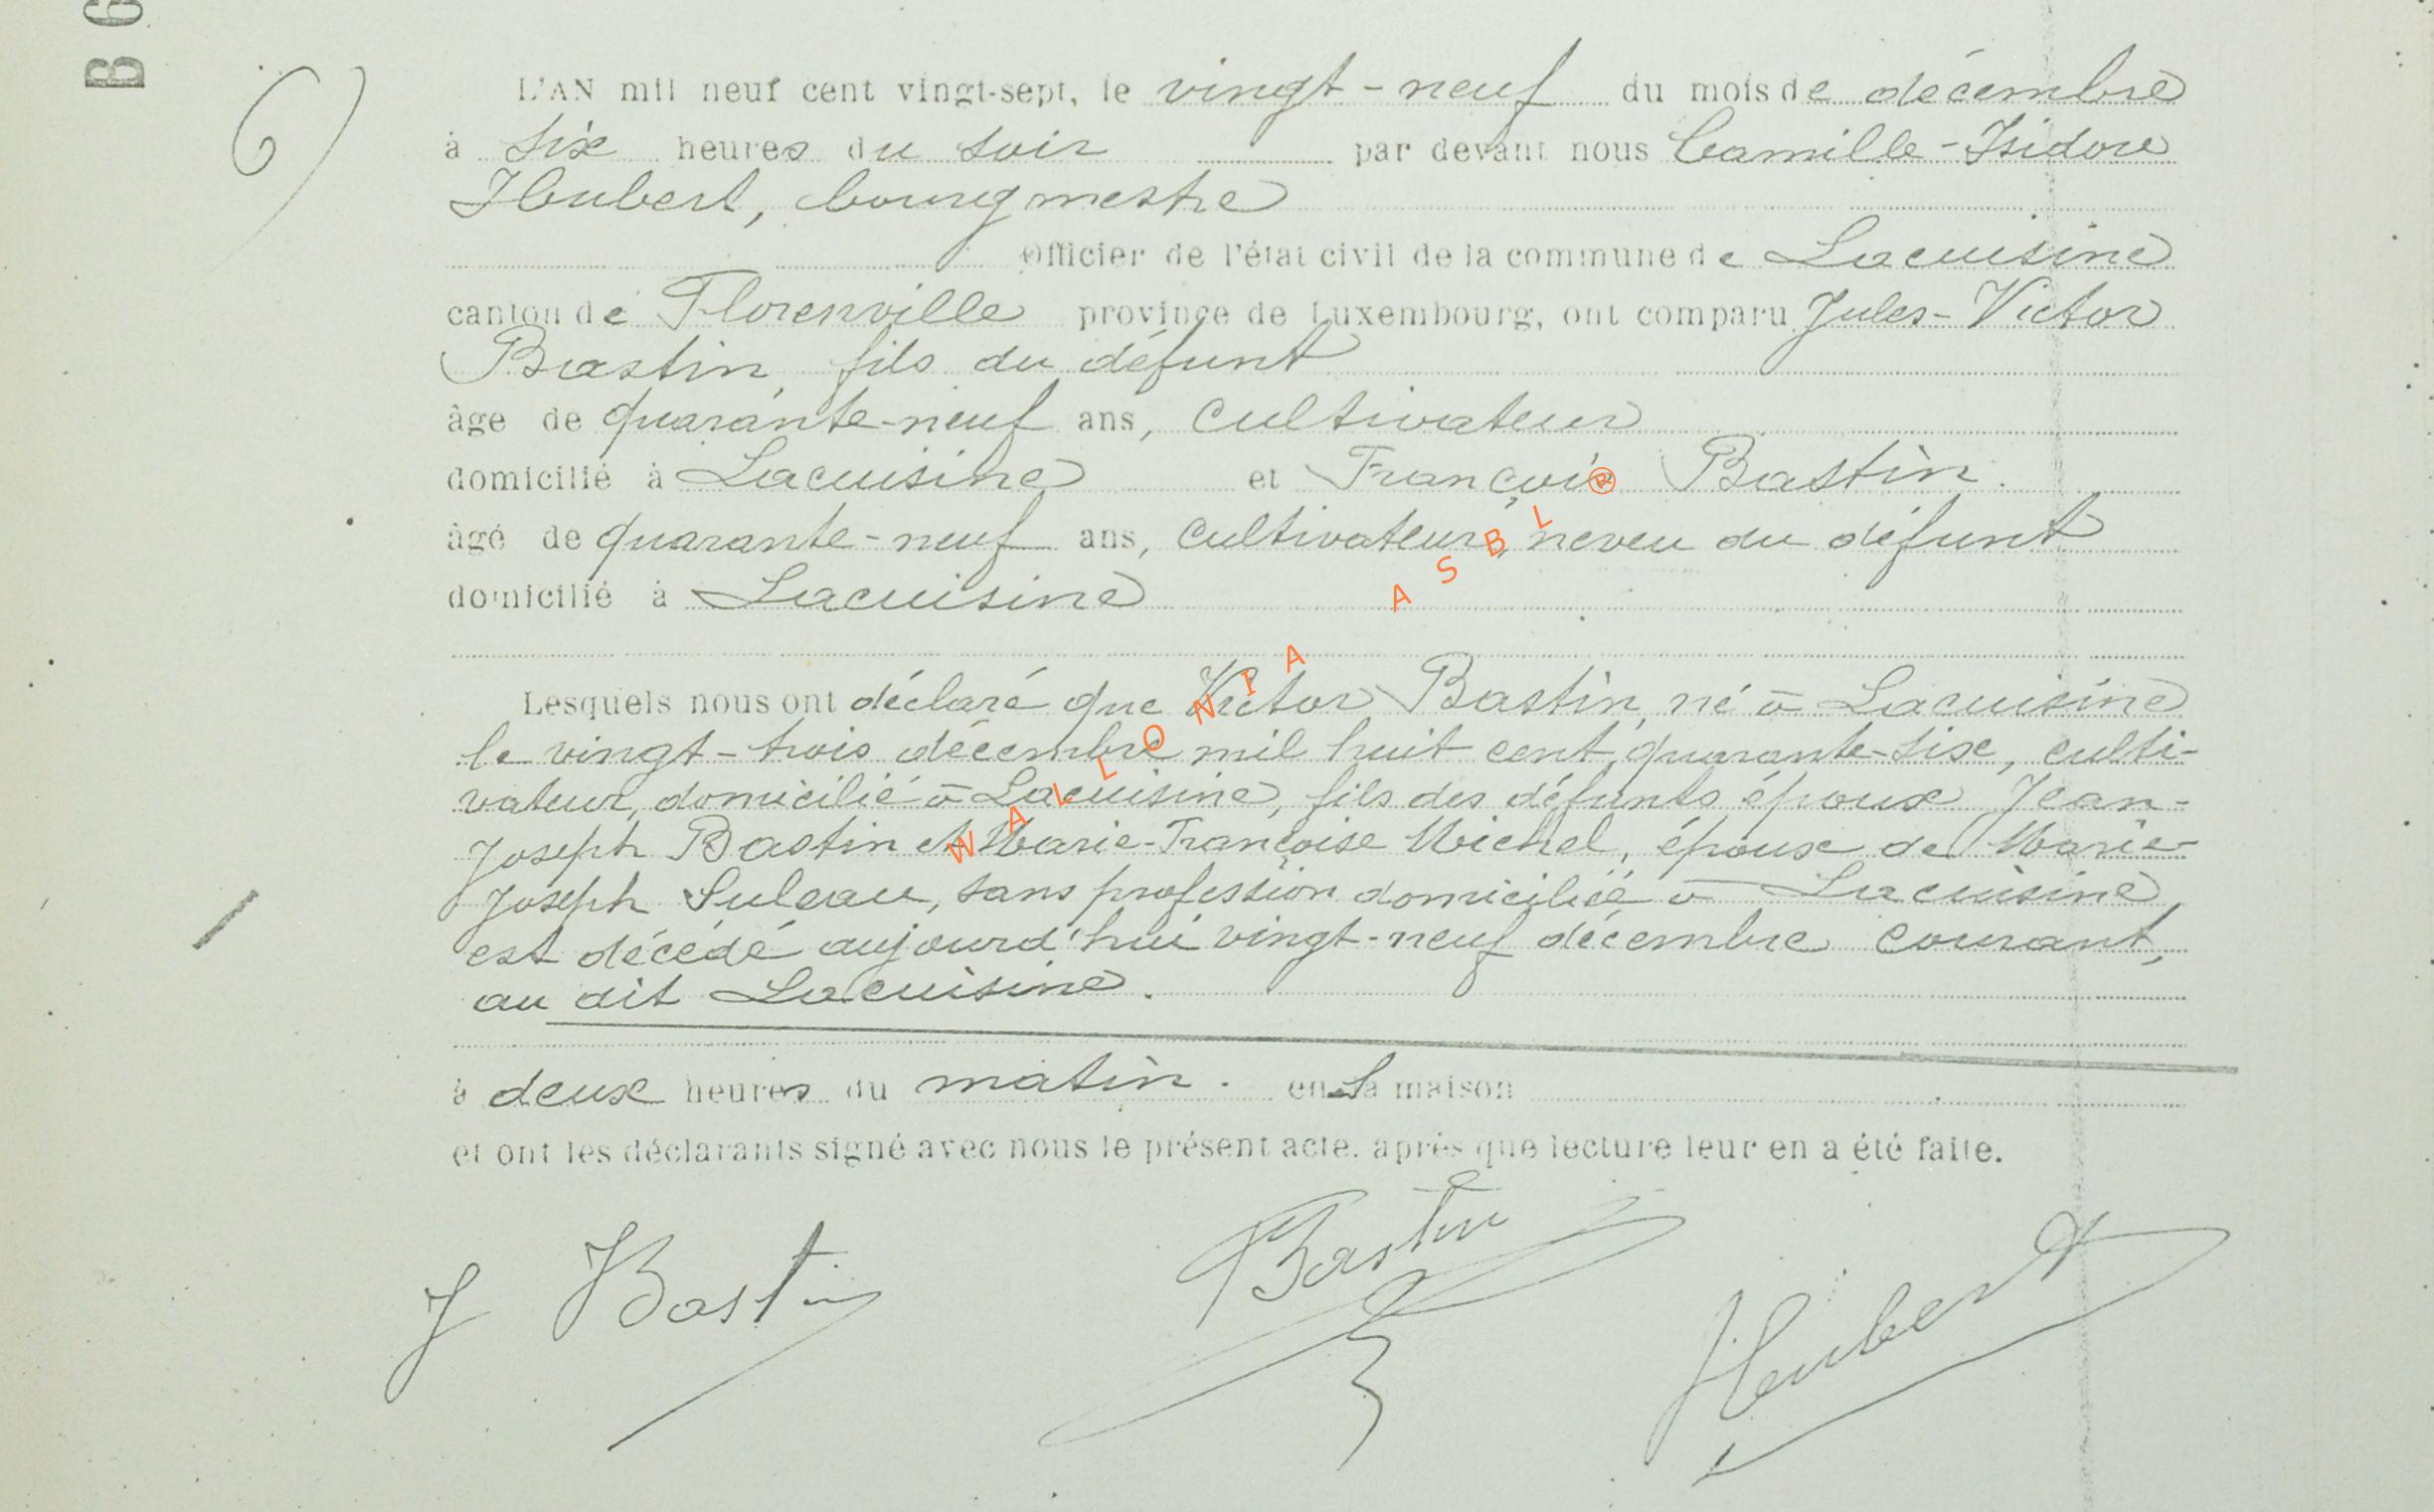 B 6
6)
L'AN mil neuf cent vingt-sept, le vingt-neuf du mois de décembre
à six heures du soir par devant nous Camille-Isidore
Hubert, bourgmestre
Officier de l'état civil de la commune de Lacuisine
canton de Florenville province de Luxembourg, ont comparu Jules-Victor
Bastin, fils du défunt
âgé de quarante-neuf ans, cultivateur
domicilié à Lacuisine et François Bastin.
âgé de quarante-neuf ans, cultivateur, neveu du défunt
domicilié à Lacuisine
Lesquels nous ont déclaré que Victor Bastin, né à Lacuisine
le vingt-trois décembre mil huit cent quarante-six, culti-
vateur, domicilié à Lacuisine, fils des défunts époux Jean-
Joseph Bastin et Marie-Françoise Michel, époux de Marie-
Joseph Suleau, sans profession domiciliée à Lacuisine,
est décédé aujourd'hui vingt-neuf décembre courant,
au dit Lacuisine.
à deux heures du matin. en sa maison
et ont les déclarants signé avec nous le présent acte, après que lecture leur en a été faite.
J Bastin
Bastin
Hubert
WALLONIA ASBL ®